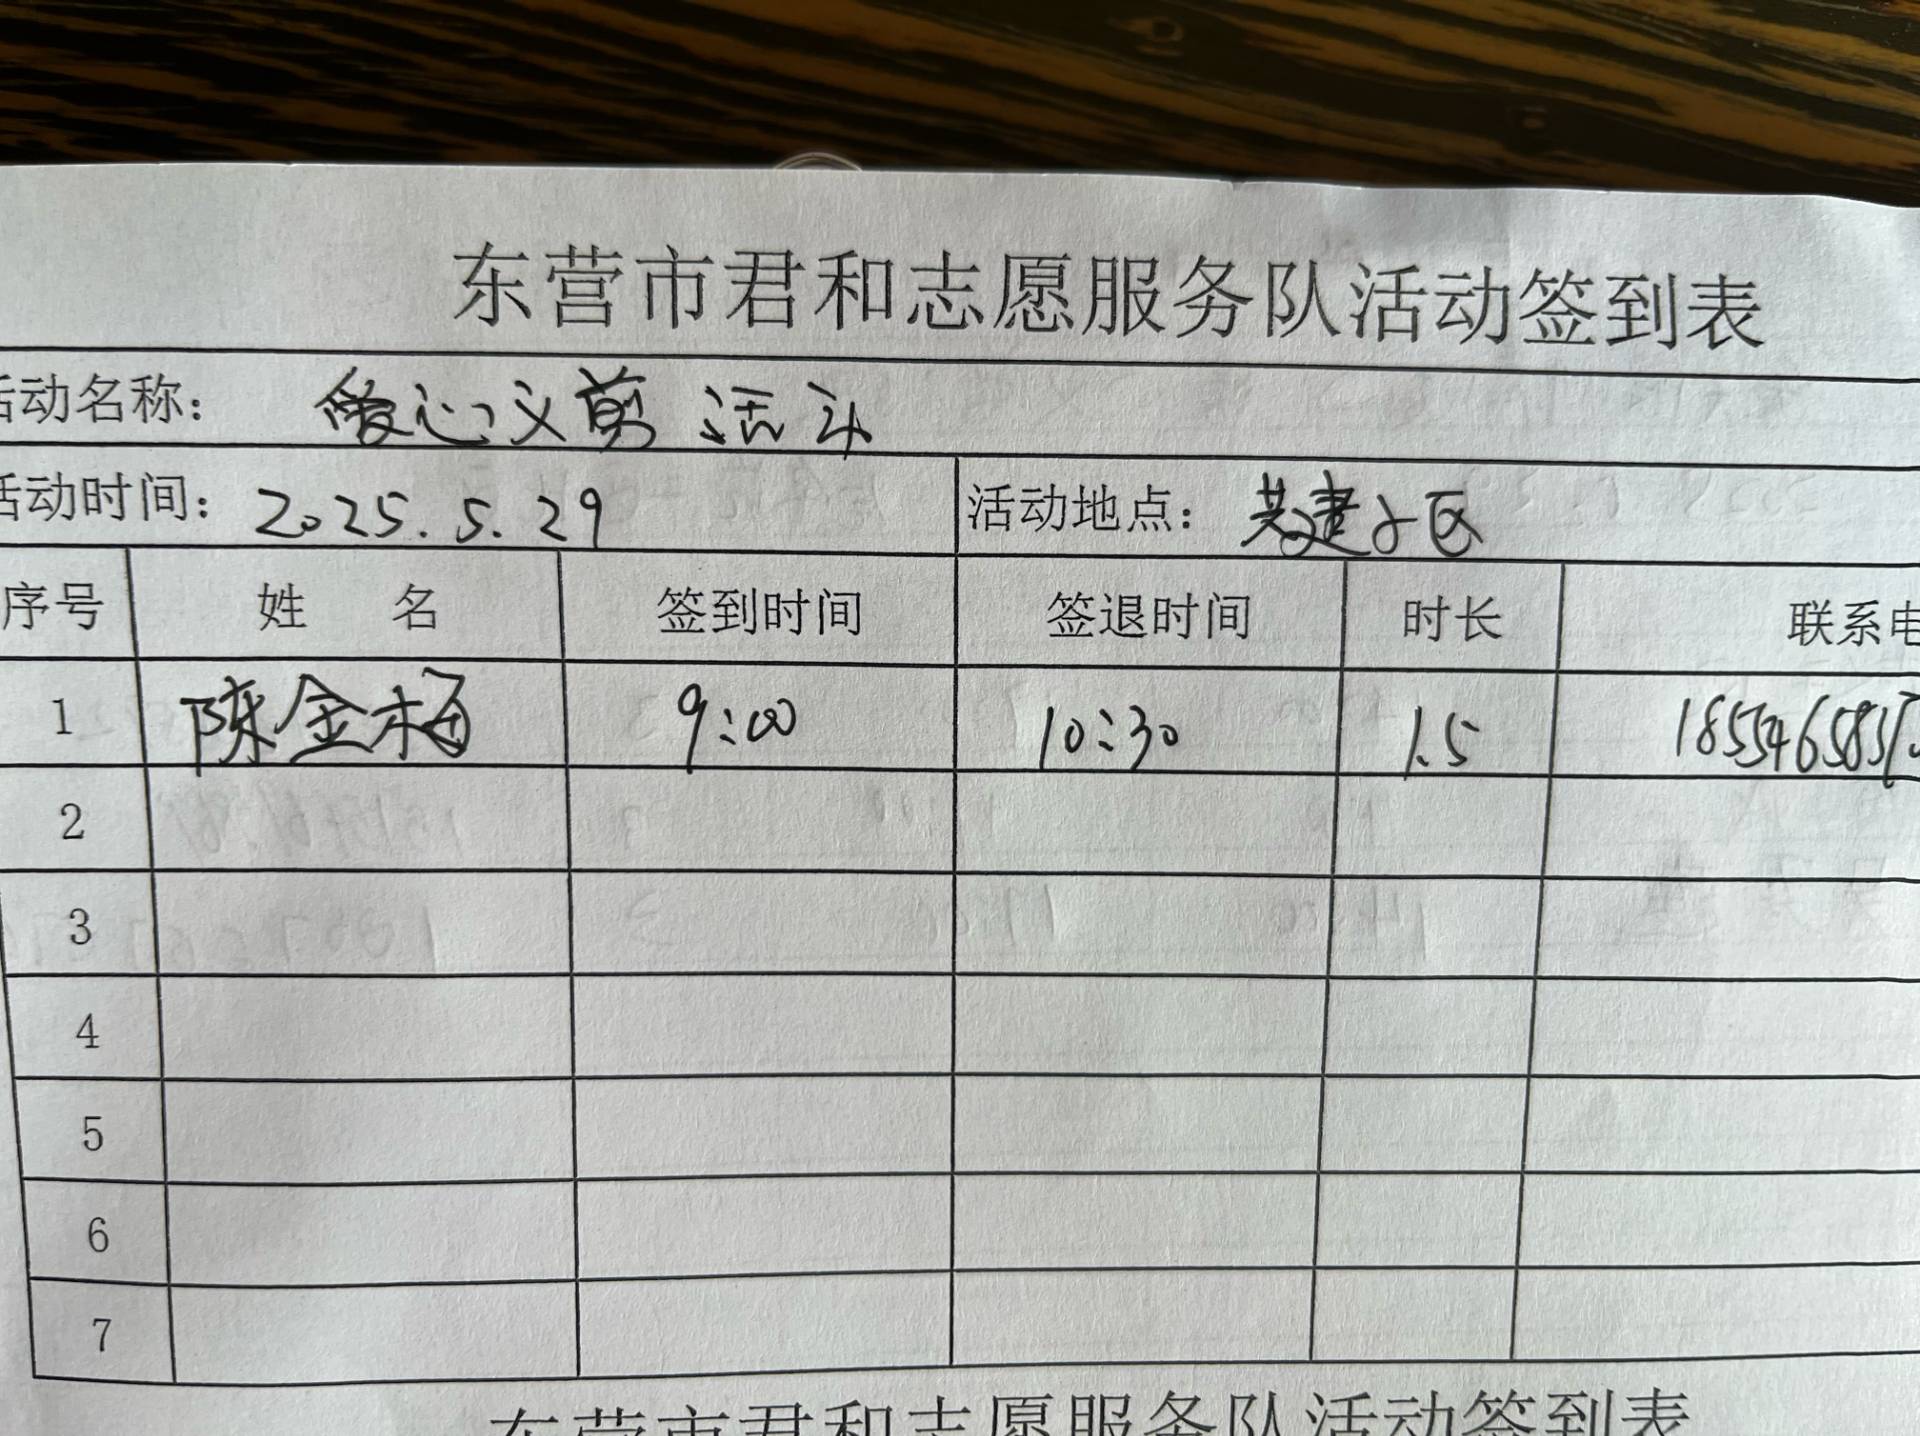 东营市君和志愿服务队活动签到表
活动名称： 爱心义剪 活动
活动时间：2025.5.29 活动地点：共建小区
序号 姓 名 签到时间 签退时间 时长 联系电
1 陈金梅 9:00 10:30 1.5
2
3
4
5
6
7
东营市君和志愿服务队活动签到表